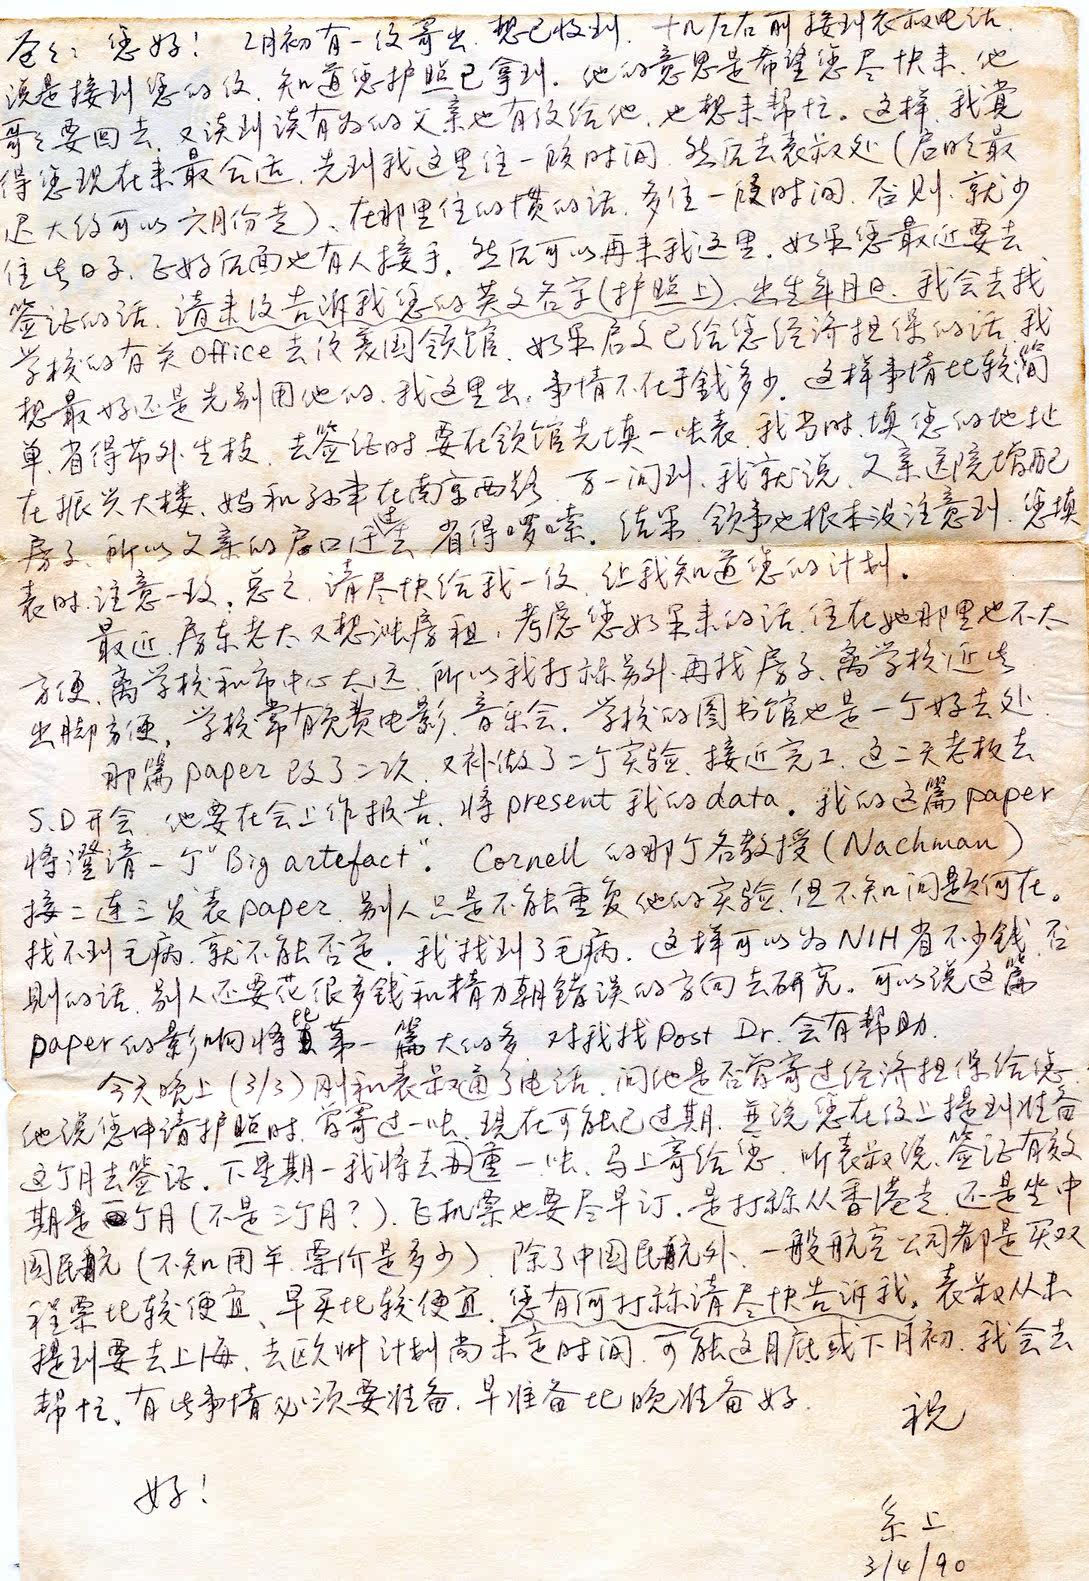 爸爸: 您好! 2月初有一信寄出, 想已收到. 十几左右前接到表叔电话,
说是接到您的信, 知道您护照已拿到. 他的意思是希望您尽快来, 他
哥哥要回去, 又谈到谈有为的父亲也有信给他, 也想来帮忙。这样, 我觉
得您现在来最合适, 先到我这里住一段时间, 然后去表叔处(启明最
迟大约可以六月份走), 在那里住的惯的话, 多住一段时间, 否则, 就少
住些日子, 正好后面也有人接手, 然后可以再来我这里, 如果您最近要去
签证的话, 请来信告诉我您的英文名字(护照上), 出生年月日, 我会去找
学校的有关office去信美国领馆, 如果启文已给您经济担保的话, 我
想最好还是先别用他的, 我这里出, 事情不在于钱多少, 这样事情比较简
单, 省得节外生枝, 去签证时要在领馆先填一张表, 我当时, 填您的地址
在振兴大楼, 妈和在南京西路, 万一问到, 我就说, 父亲医院增配
房子, 所以父亲的户口迁去, 省得啰嗦. 结果, 领事也根本没注意到, 您填
表时, 注意一致. 总之, 请尽快给我一信, 让我知道您的计划.
最近, 房东老太又想涨房租, 考虑您如果来的话, 住在她那里也不太
方便, 离学校和市中心太远, 所以我打祘另外再找房子, 离学校近些
出脚方便, 学校常有免费电影, 音乐会, 学校的图书馆也是一个好去处.
那篇paper改了二次, 又补做了二个实验, 接近完工, 这二天老板去
S.D开会, 他要在会上作报告, 将present我的data. 我的这篇paper
将澄清一个"Big artefact". Cornell的那个名教授(Nachman)
接二连三发表paper, 别人只是不能重复他的实验, 但不知问题何在.
找不到毛病, 就不能否定. 我找到了毛病, 这样可以为NIH省不少钱, 否
则的话, 别人还要花很多钱和精力朝错误的方向去研究. 可以说这篇
paper的影响将比第一篇大的多, 对我找Post Dr.会有帮助.
今天晚上(3/3)刚和表叔通了电话, 问他是否曾寄过经济担保给您
他说您申请护照时, 曾寄过一张, 现在可能已过期, 並说您在信上提到准备
这个月去签证. 下星期一我将去再重一张, 马上寄给您, 听表叔说, 签证有效
期是个月(不是三个月?), 飞机票也要尽早订, 是打祘从香港走, 还是坐中
国民航(不知用羊, 票价是多少), 除了中国民航外, 一般航空公司都是买双
程票比较便宜, 早买比较便宜, 您有何打祘请尽快告诉我. 表叔从未
提到要去上海, 去欧州计划尚未定时间, 可能这月底或下月初, 我会去
帮忙, 有些事情必须要准备, 早准备比晚准备好.
祝
好!
系上
3/4/90